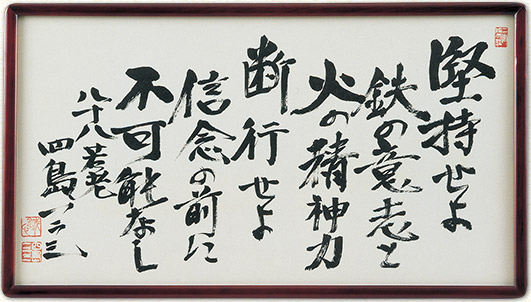 堅持せよ
鉄の意志と
火の精神力
断行せよ
信念の前に
不可能なし
八十八若老
四島一二三